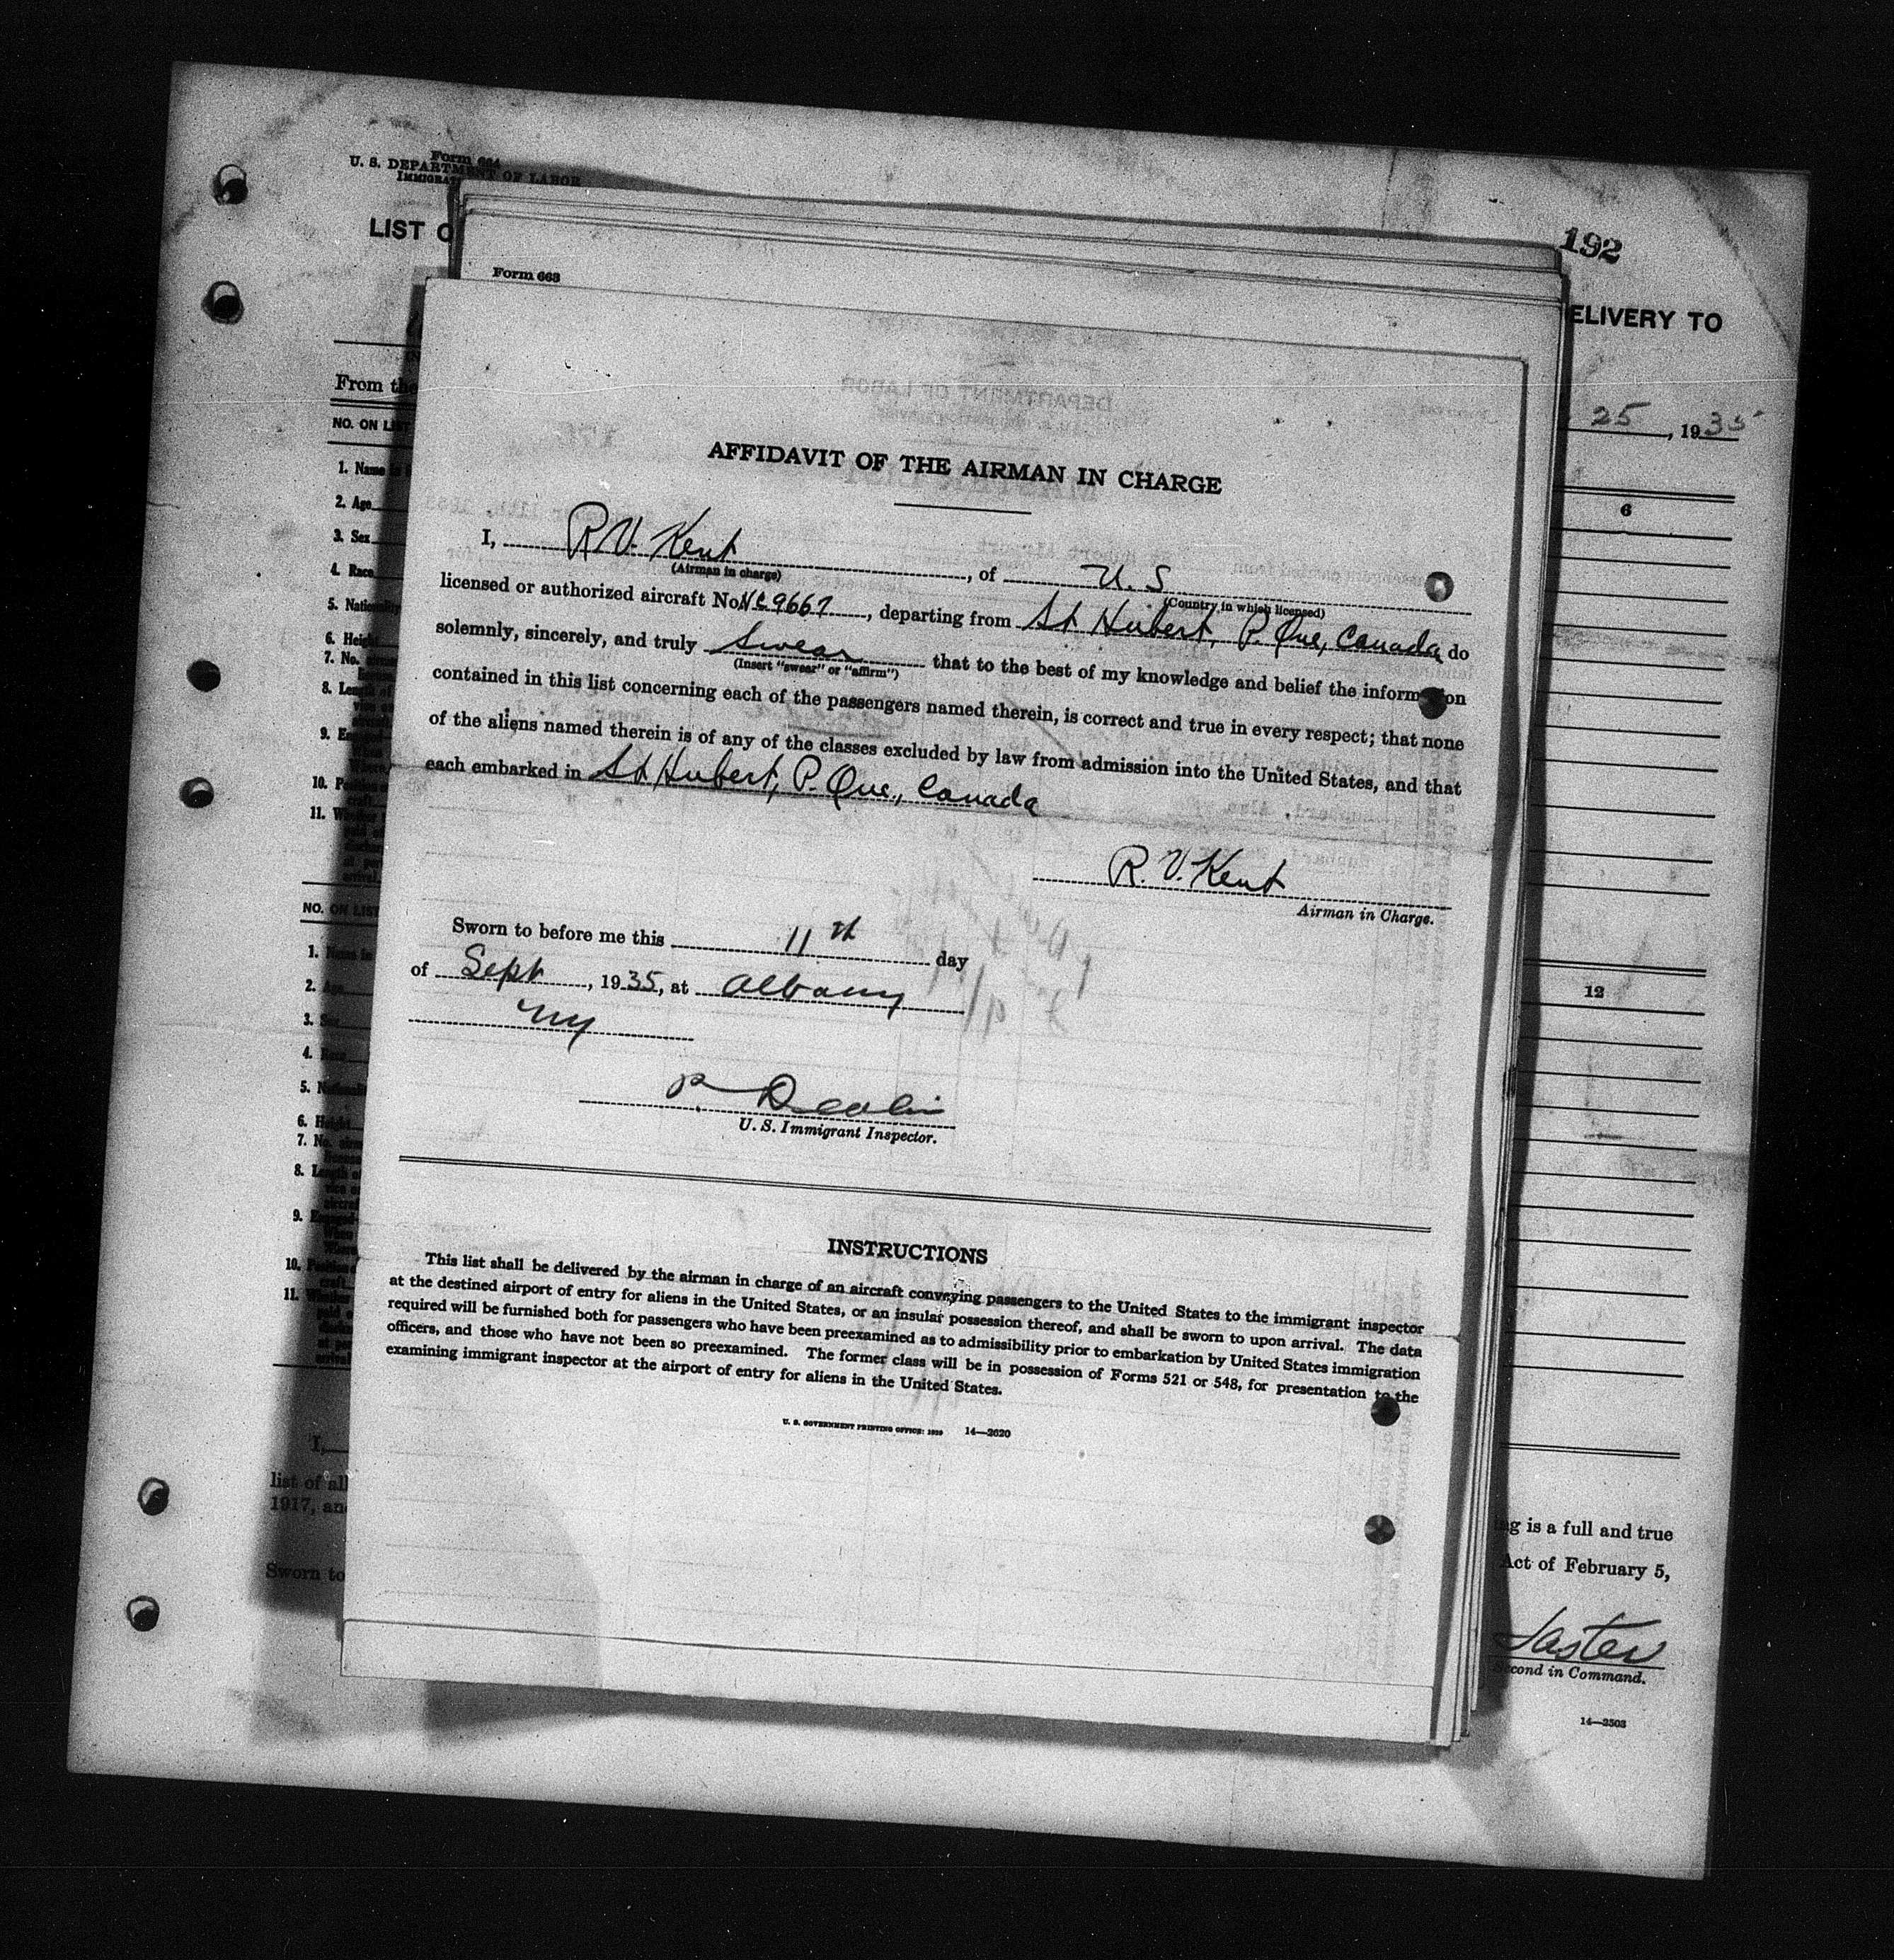 Form 664
U. S. DEPARTMENT OF LABOR
LIST
192
Form 663
ELIVERY TO
From the
25, 1935
NO. ON LIST
1. Name
2. Age
3. Sex
4. Race
5. Nationality
6. Height
7. No.
8. Length of
9.
10.
11.
6
AFFIDAVIT OF THE AIRMAN IN CHARGE
I, R V. Kent, of U. S
(Airman in charge) (Country in which licensed)
licensed or authorized aircraft No. NC9667, departing from St Hubert, P. Que, Canada do
solemnly, sincerely, and truly swear that to the best of my knowledge and belief the information
(Insert "swear" or "affirm")
contained in this list concerning each of the passengers named therein, is correct and true in every respect; that none
of the aliens named therein is of any of the classes excluded by law from admission into the United States, and that
each embarked in St Hubert, P. Que., Canada
R. V. Kent
Airman in Charge.
Sworn to before me this 11th day
of Sept, 1935, at Albany
NY
U. S. Immigrant Inspector.
NO. ON LIST
12
1.
2. Age
3.
4.
5.
6. Height
7. No.
8.
9.
10.
11.
INSTRUCTIONS
This list shall be delivered by the airman in charge of an aircraft conveying passengers to the United States to the immigrant inspector
at the destined airport of entry for aliens in the United States, or an insular possession thereof, and shall be sworn to upon arrival. The data
required will be furnished both for passengers who have been preexamined as to admissibility prior to embarkation by United States immigration
officers, and those who have not been so preexamined. The former class will be in possession of Forms 521 or 548, for presentation to the
examining immigrant inspector at the airport of entry for aliens in the United States.
U. S. GOVERNMENT PRINTING OFFICE: 1929 14—2620
I,
list of all
1917, an
Sworn to
is a full and true
Act of February 5,
Second in Command.
14—2503